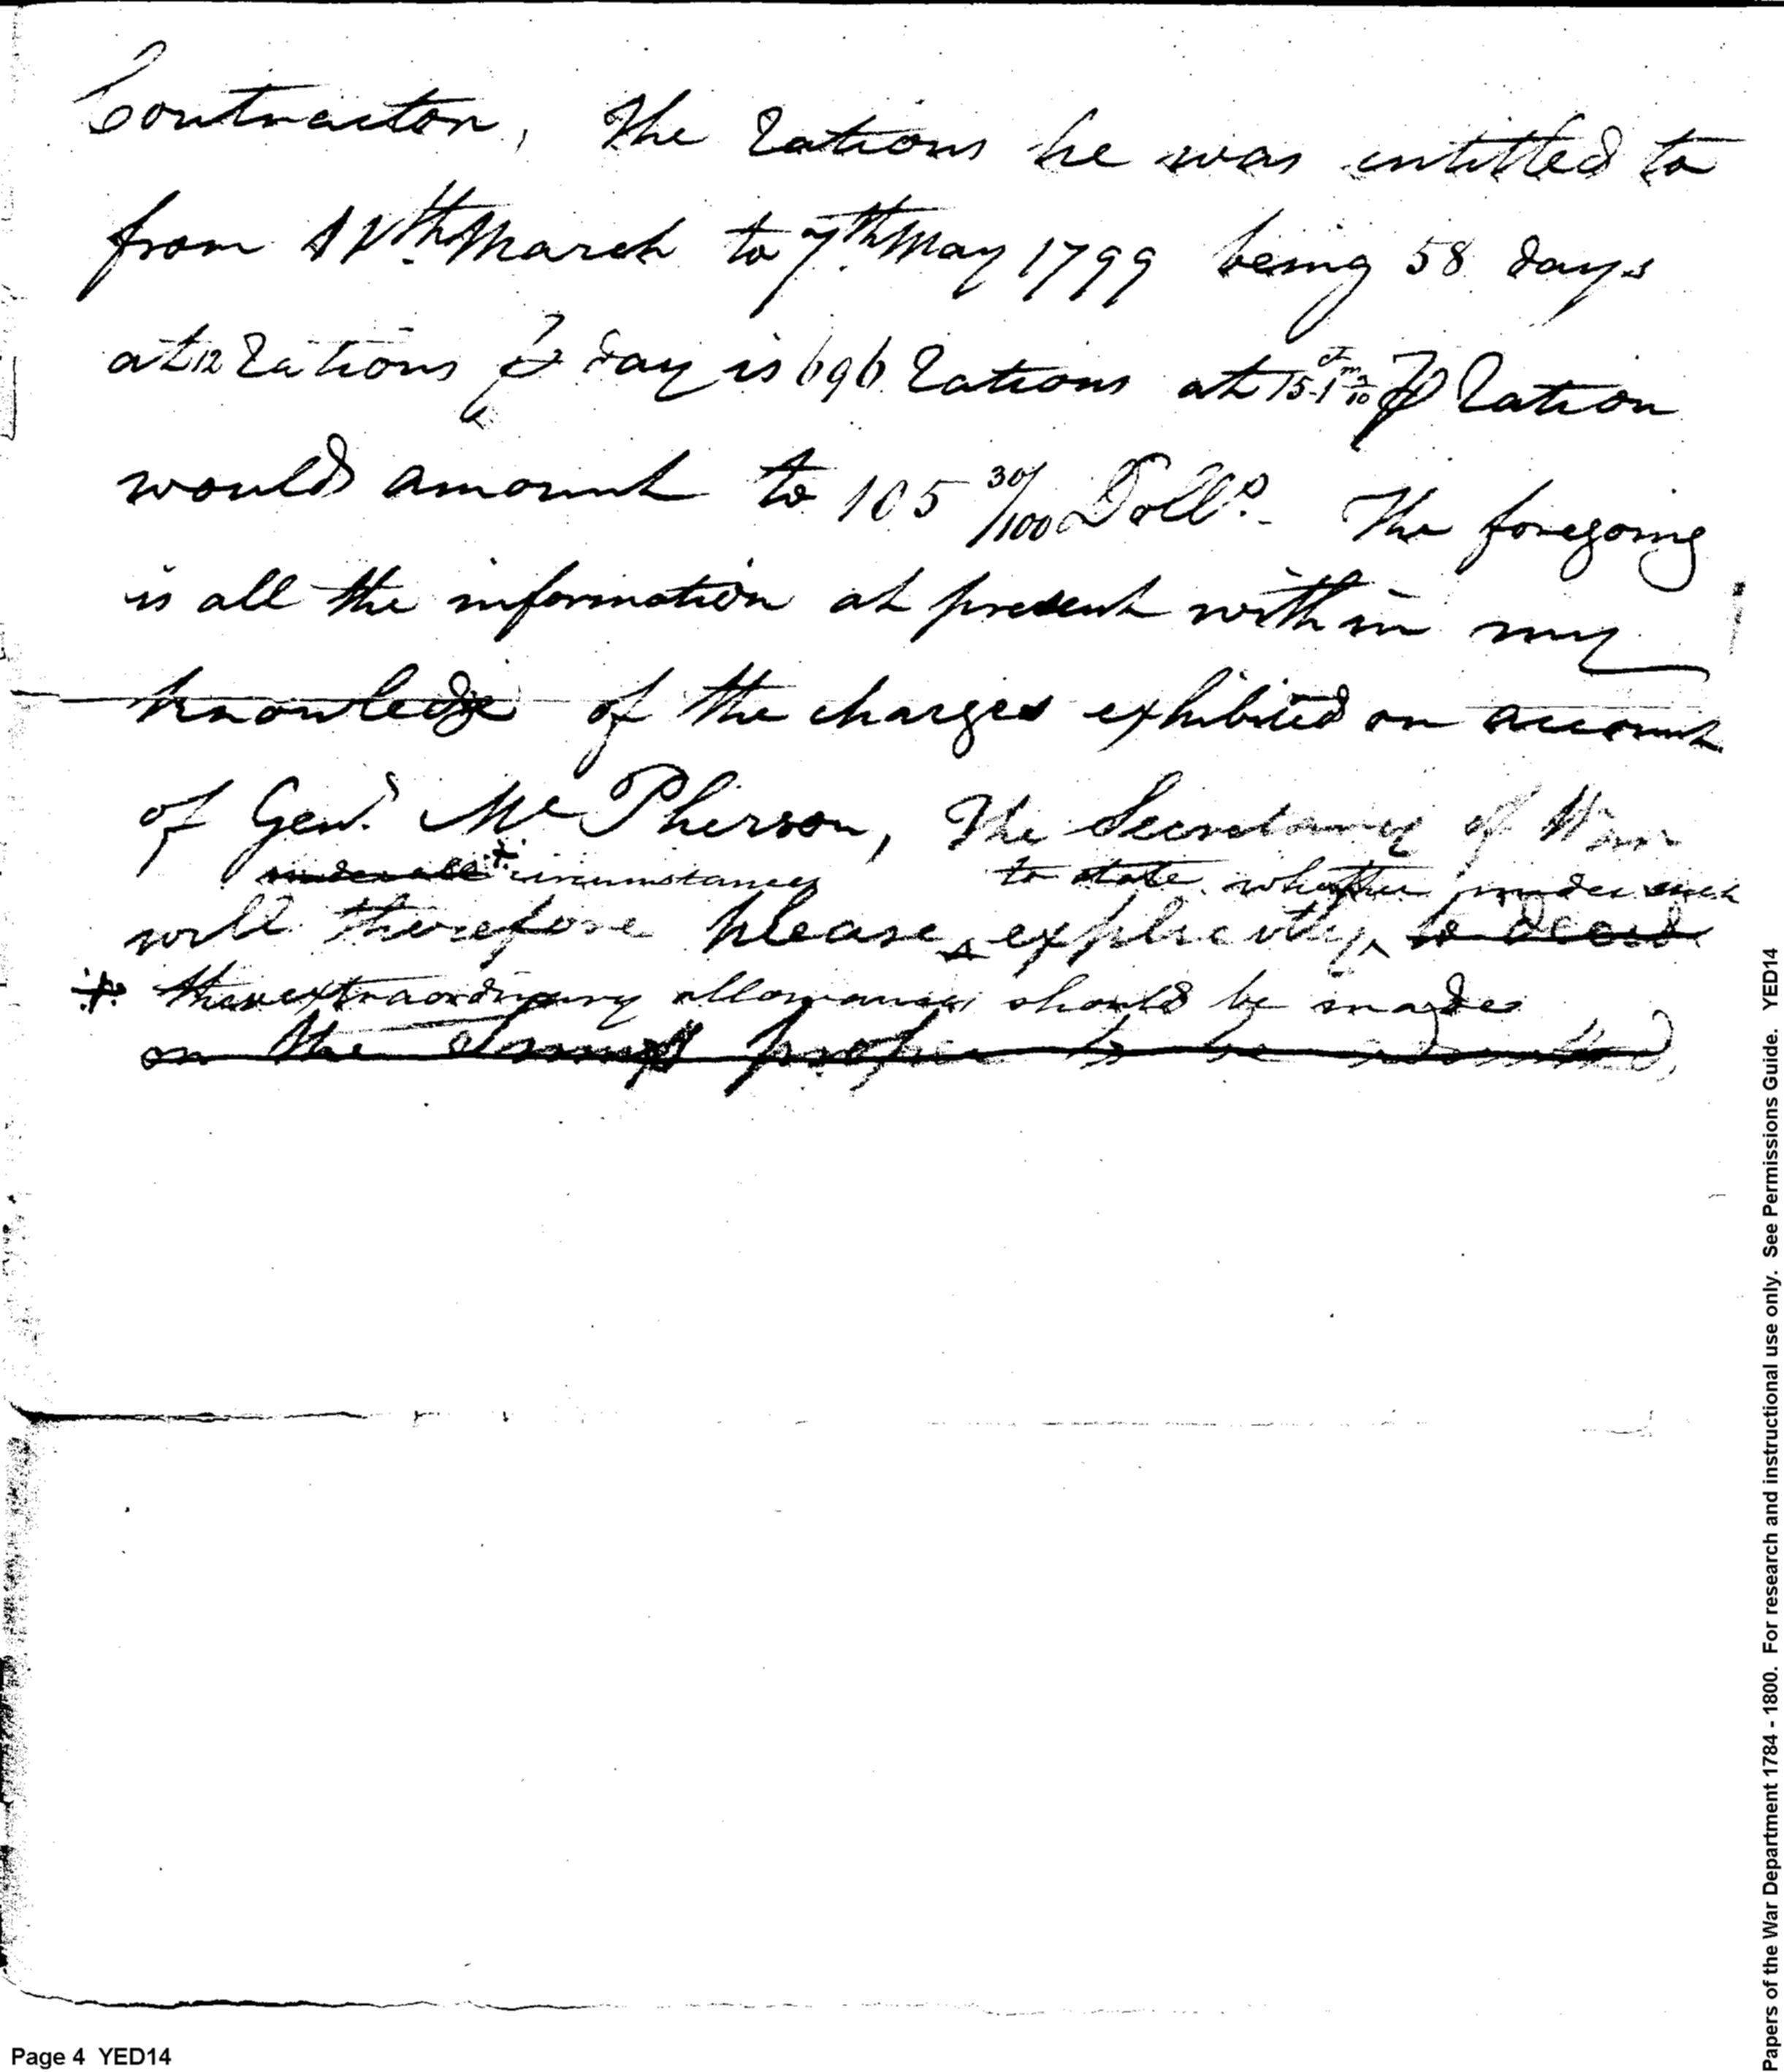 Contractor, The rations he was entitled to
from 11th March to 7th May 1799 being 58 days
at 12 rations ⅌ day is 696 rations at 15 cts 1 3/10 ⅌ ration
would amount to 105 30/100 Dolls. The foregoing
is all the information at present within my
knowledge of the charges exhibited on account
of Genl. McPherson, The Secretary of War
under all * circumstances to state whether under such
will therefore please explicitly to decid
* these extraordinary allowances should be made
on the proper to be admitted,
Page 4 YED14
Papers of the War Department 1784 - 1800. For research and instructional use only. See Permissions Guide. YED14